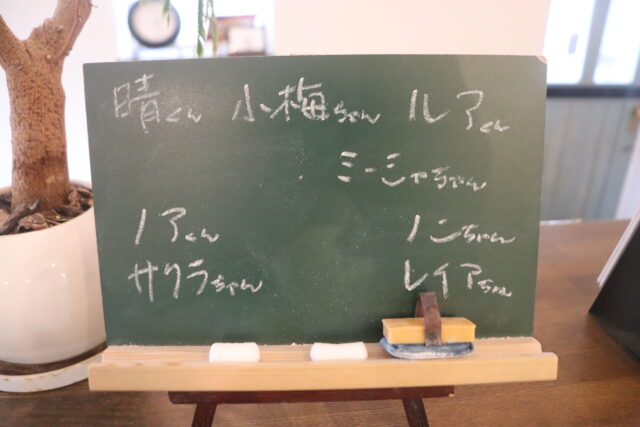 晴くん 小梅ちゃん ルアくん
ミーシャちゃん
ノアくん ノンちゃん
サクラちゃん レイアちゃん